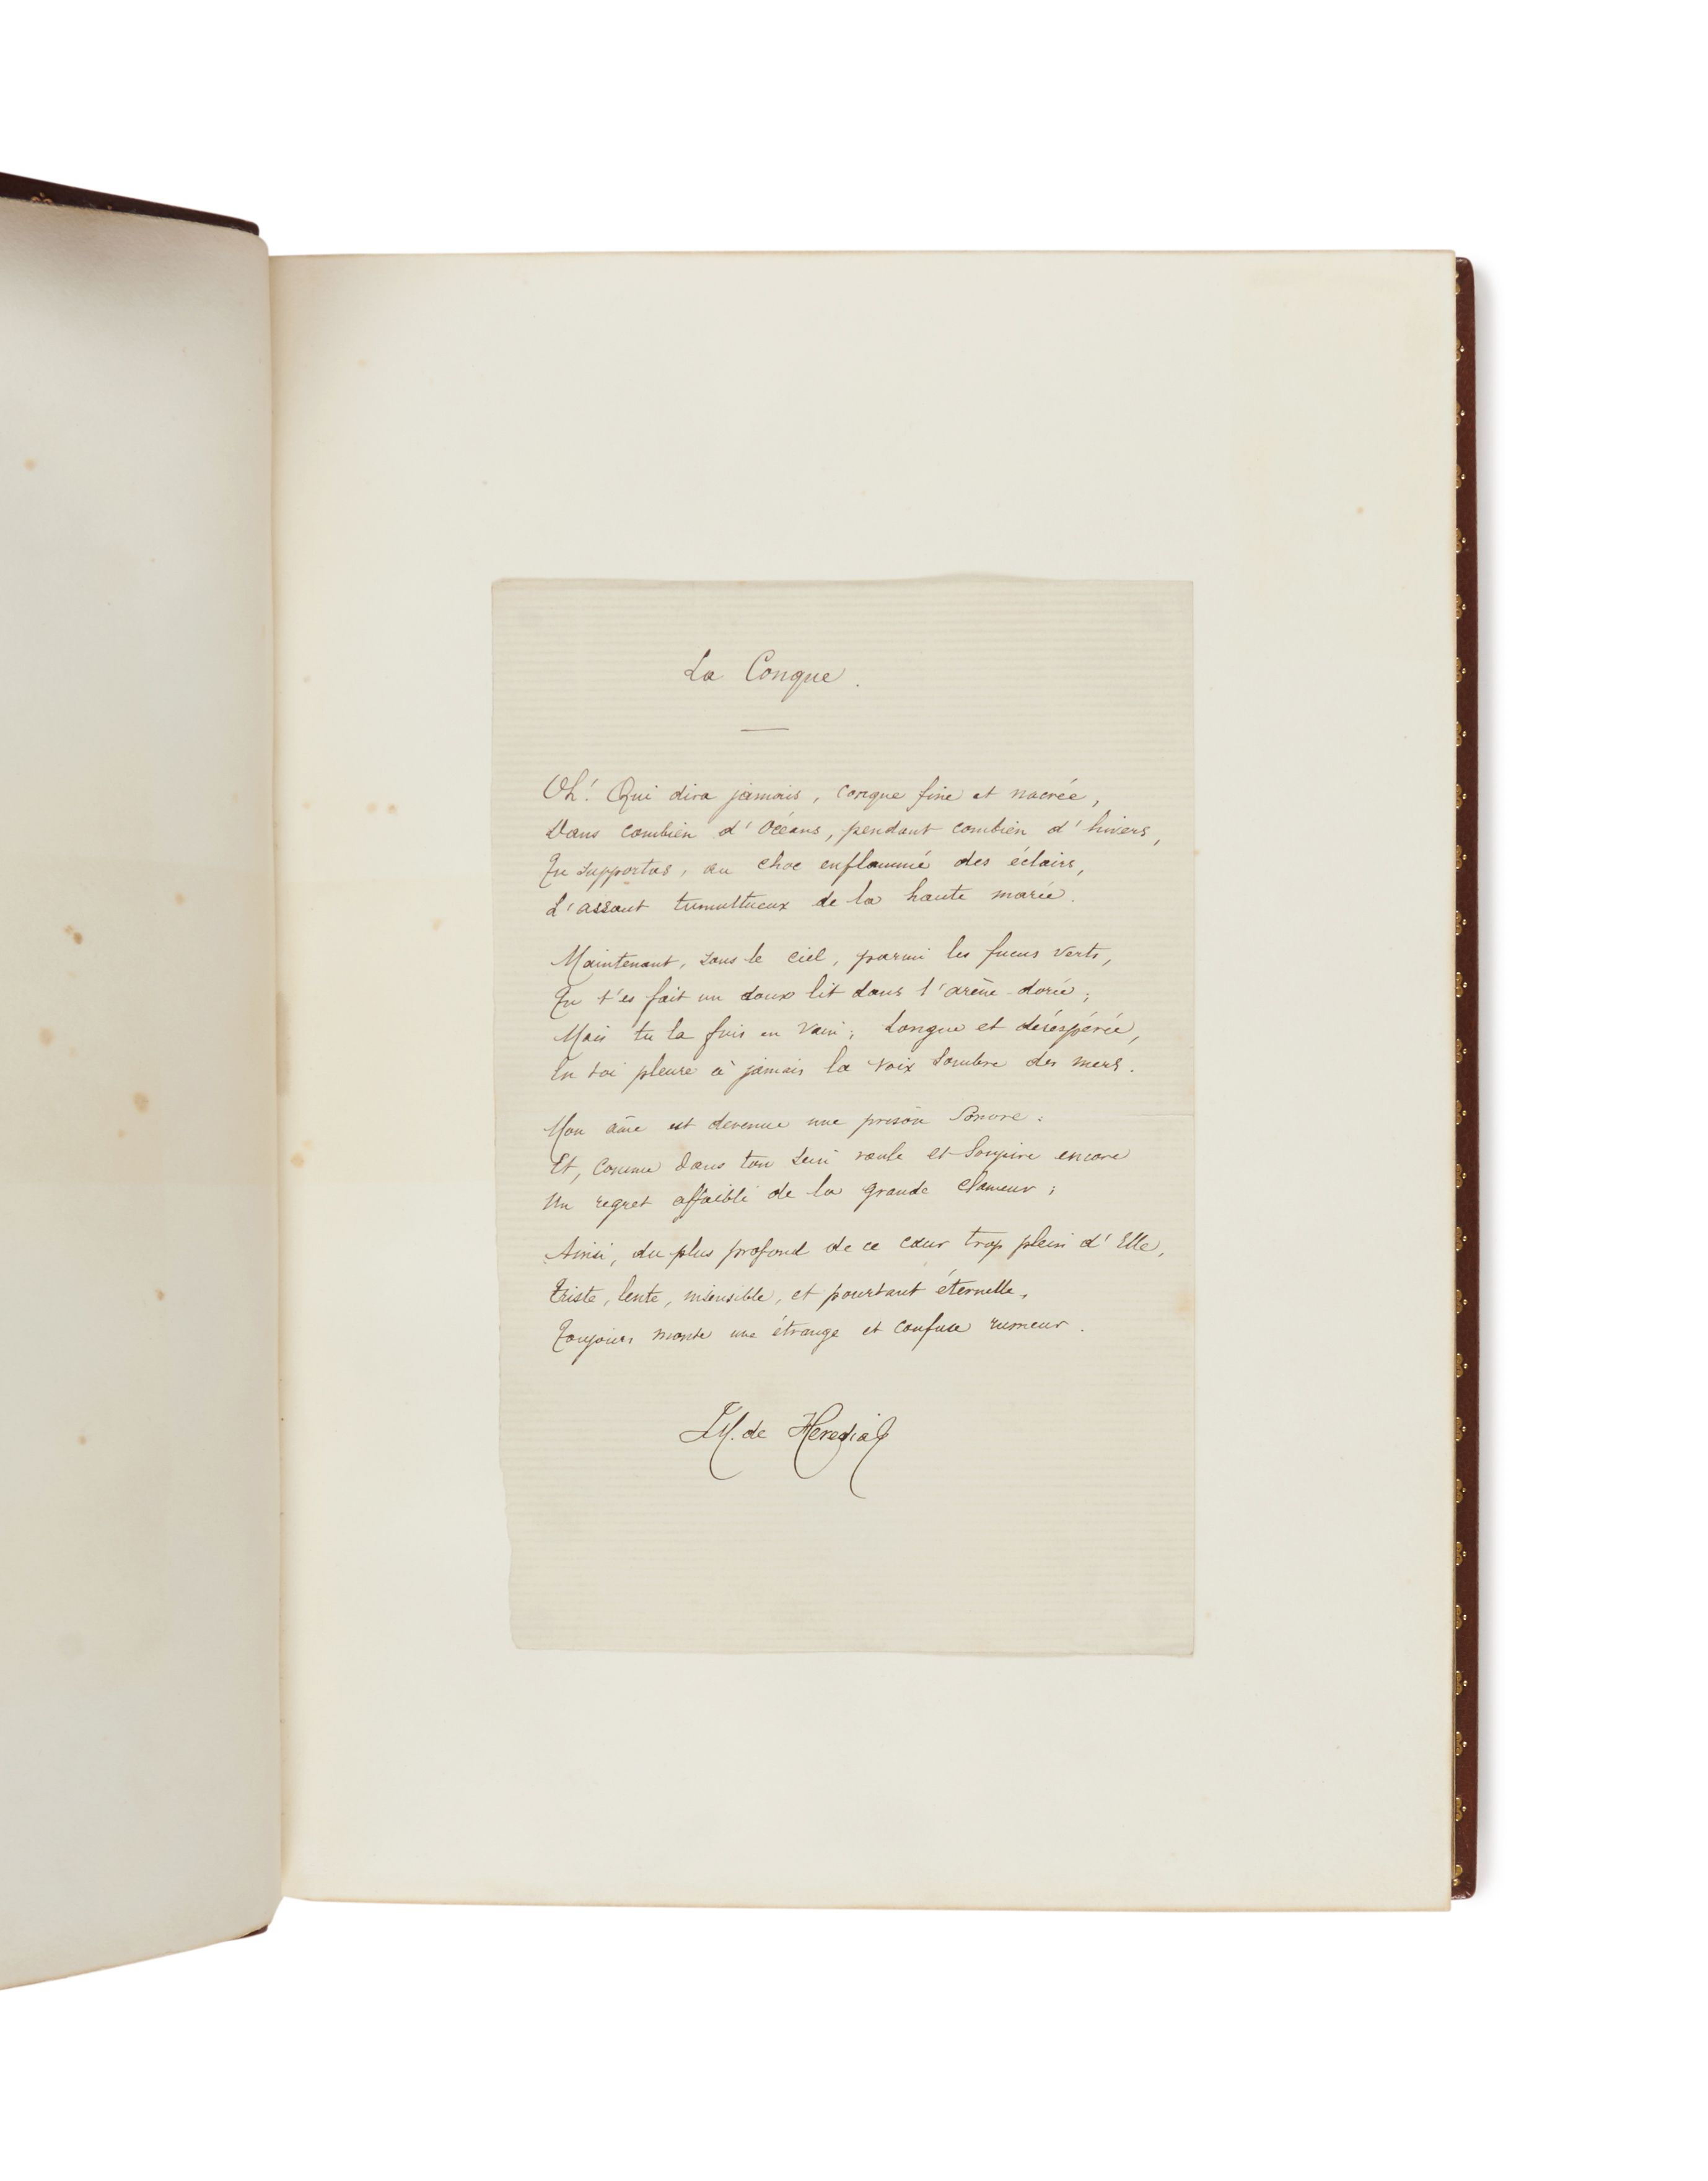 La Conque.
Oh! Qui dira jamais, conque fine et nacrée,
Dans combien d'Océans, pendant combien d'hivers,
Tu supportas, au choc enflammé des éclairs,
L'assaut tumultueux de la haute marée.
Maintenant, sous le ciel, parmi les fucus verts,
Tu t'es fait un doux lit dans l'arène dorée;
Mais tu la fuis en vain; Longue et désespérée,
En toi pleure à jamais la voix sombre des mers.
Mon âme est devenue une prison Sonore:
Et, comme dans ton sein roule et Soupire encore
Un regret affaibli de la grande clameur;
Ainsi, du plus profond de ce cœur trop plein d'Elle,
Triste, lente, insensible, et pourtant éternelle,
Toujours monte une étrange et confuse rumeur.
JM. de Heredia